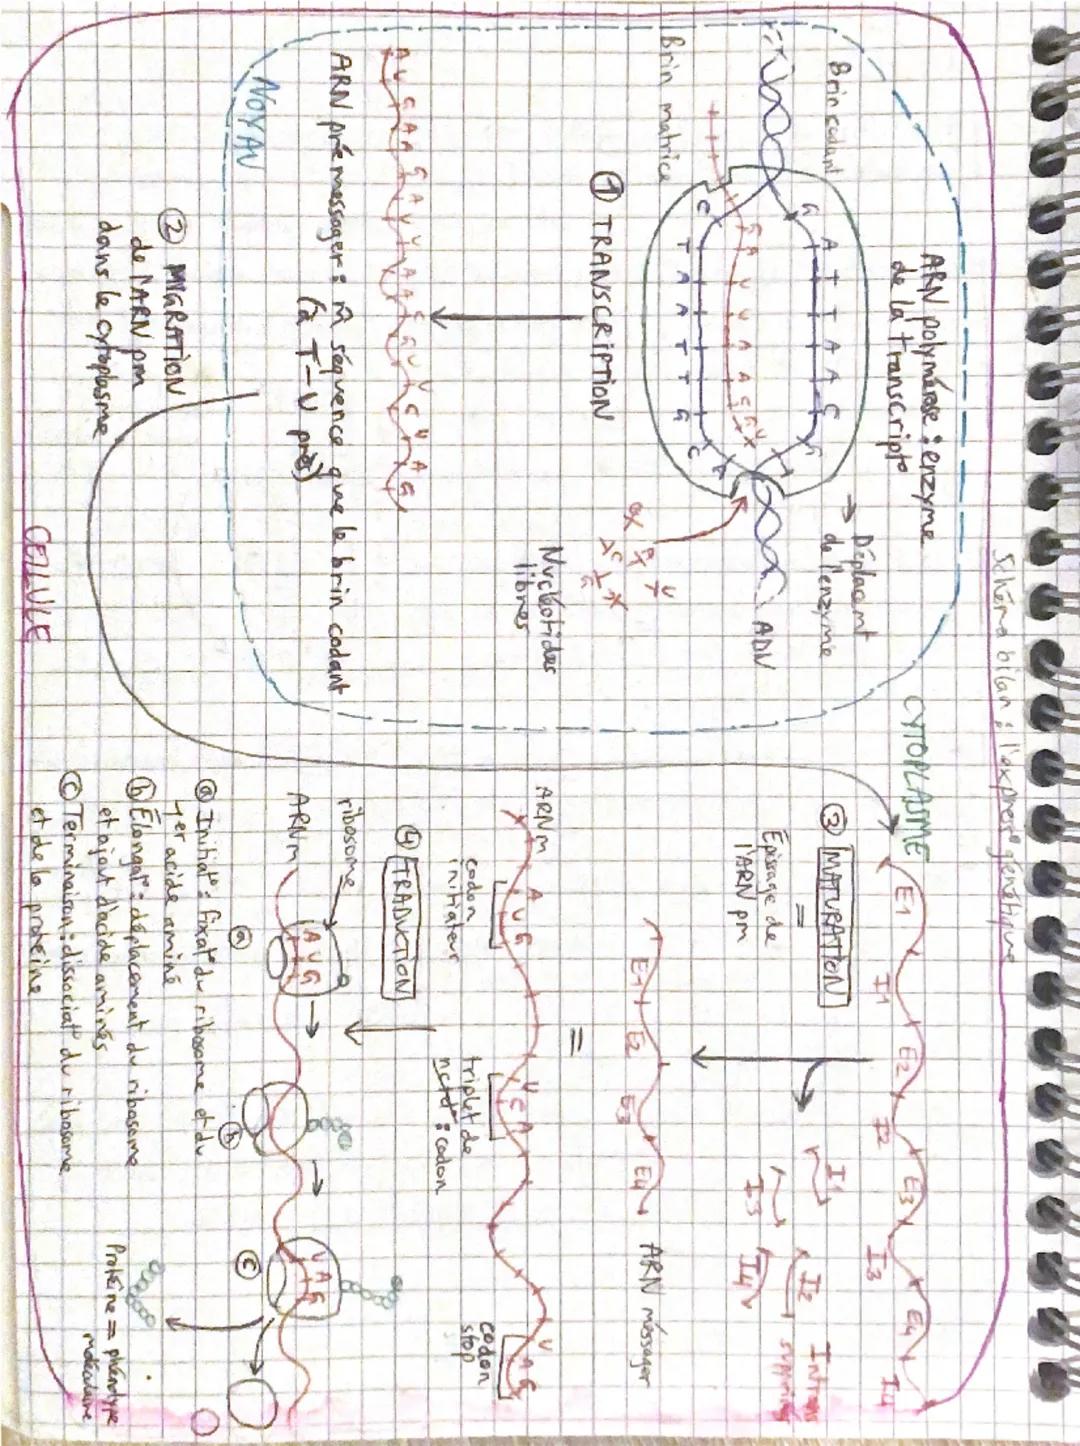 Schéma bilan : l'express° génétique
ARN polymérase : enzyme
de la transcript°
→ Déplacemt
de l'enzyme
Brin codant
G A T T A A C G
G A U U A A C G U
C T A A T T G C A
Brin matrice
ADN
Nucléotides
libres
① TRANSCRIPTION
A U G A A G A U U A A C G U C U A G
ARN prémessager : m̂ séquence que le brin codant
(à T-U près)
NOYAU
② MIGRATION
de l'ARN pm
dans le cytoplasme
CELLULE
CYTOPLASME
E1 I1 E2 I2 E3 I3 E4 I4
③ MATURATION
=
Épissage de
l'ARN pm
I1 I2 I3 I4
Introns
supprimés
E1 E2 E3 E4 ARN messager
=
ARNm A U G U C A U A G
codon
initiateur
triplet de
codon
codon
stop
④ TRADUCTION
ribosome
ARNm A U G U A G
ⓐ ⓑ ⓒ
ⓐ Initiat° : fixat° du ribosome et du
1er acide aminé
ⓑ Élongat° : déplacement du ribosome
et ajout d'acide aminés
ⓒ Terminaison : dissociat° du ribosome
et de la protéine
Protéine = phénotype
moléculaire